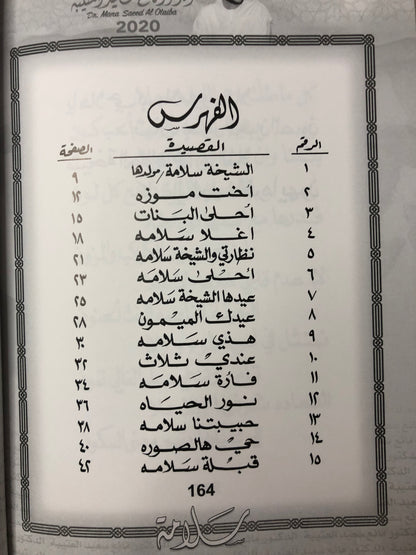 Dr. Mana Saeed Al Otaiba
2020
الفهرس
الرقم القصيدة الصفحة
١ الشيخة سلامة/مولدها ٩
٢ أخت موزه ١٢
٣ أحلى البنات ١٥
٤ اغلا سلامه ١٨
٥ نظارتي والشيخة سلامه ٢١
٦ أحلى سلامه ٢٣
٧ عيدها الشيخة سلامه ٢٥
٨ عيدك الميمون ٢٨
٩ هذي سلامه ٣٠
١٠ عندي ثلاث ٣٢
١١ فازة سلامه ٣٤
١٢ نور الحياه ٣٦
١٣ حبيبتنا سلامه ٣٨
١٤ حي هالصوره ٤٠
١٥ قبلة سلامه ٤٢
164
سلامة